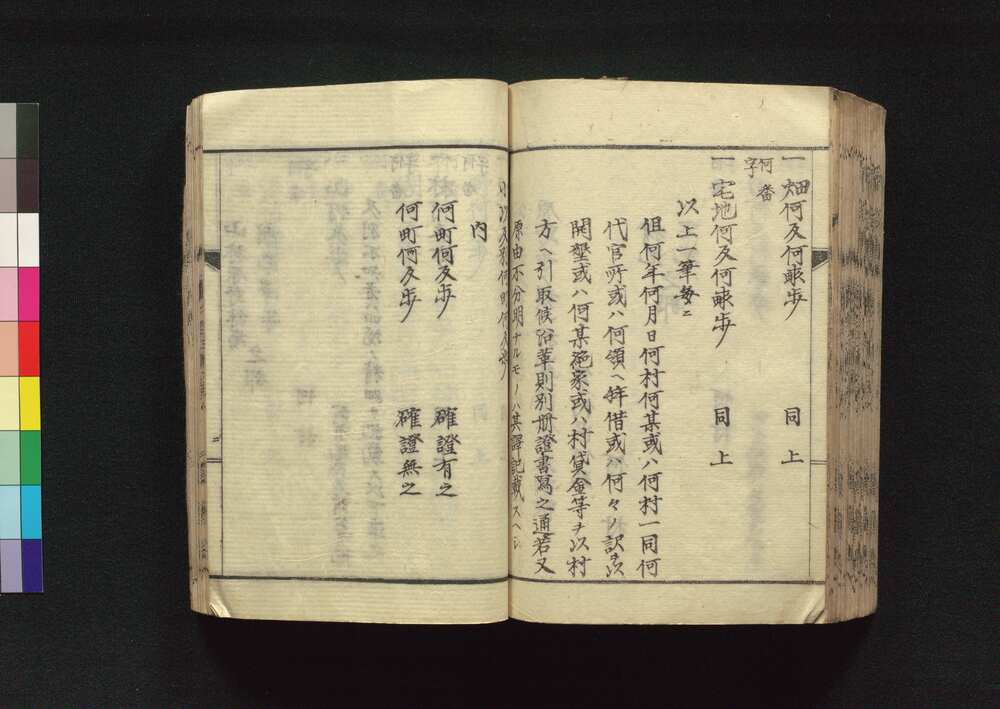 一畑何反何畝歩　同上
字何番
一宅地何反何畝歩　同上
以上一筆毎ニ
但何年何月日何村何某或ハ何村一同何
代官所或ハ何領ヘ拝借或ハ何々ノ訳ヲ以
開墾或ハ何某絶家或ハ村貸金等ヲ以村
方ヘ引取候沿革則別冊證書寫之通若又
原由不分明ナルモノハ其譯記載スヘシ
内
何町何反歩　確證有之
何町何反歩　確證無之